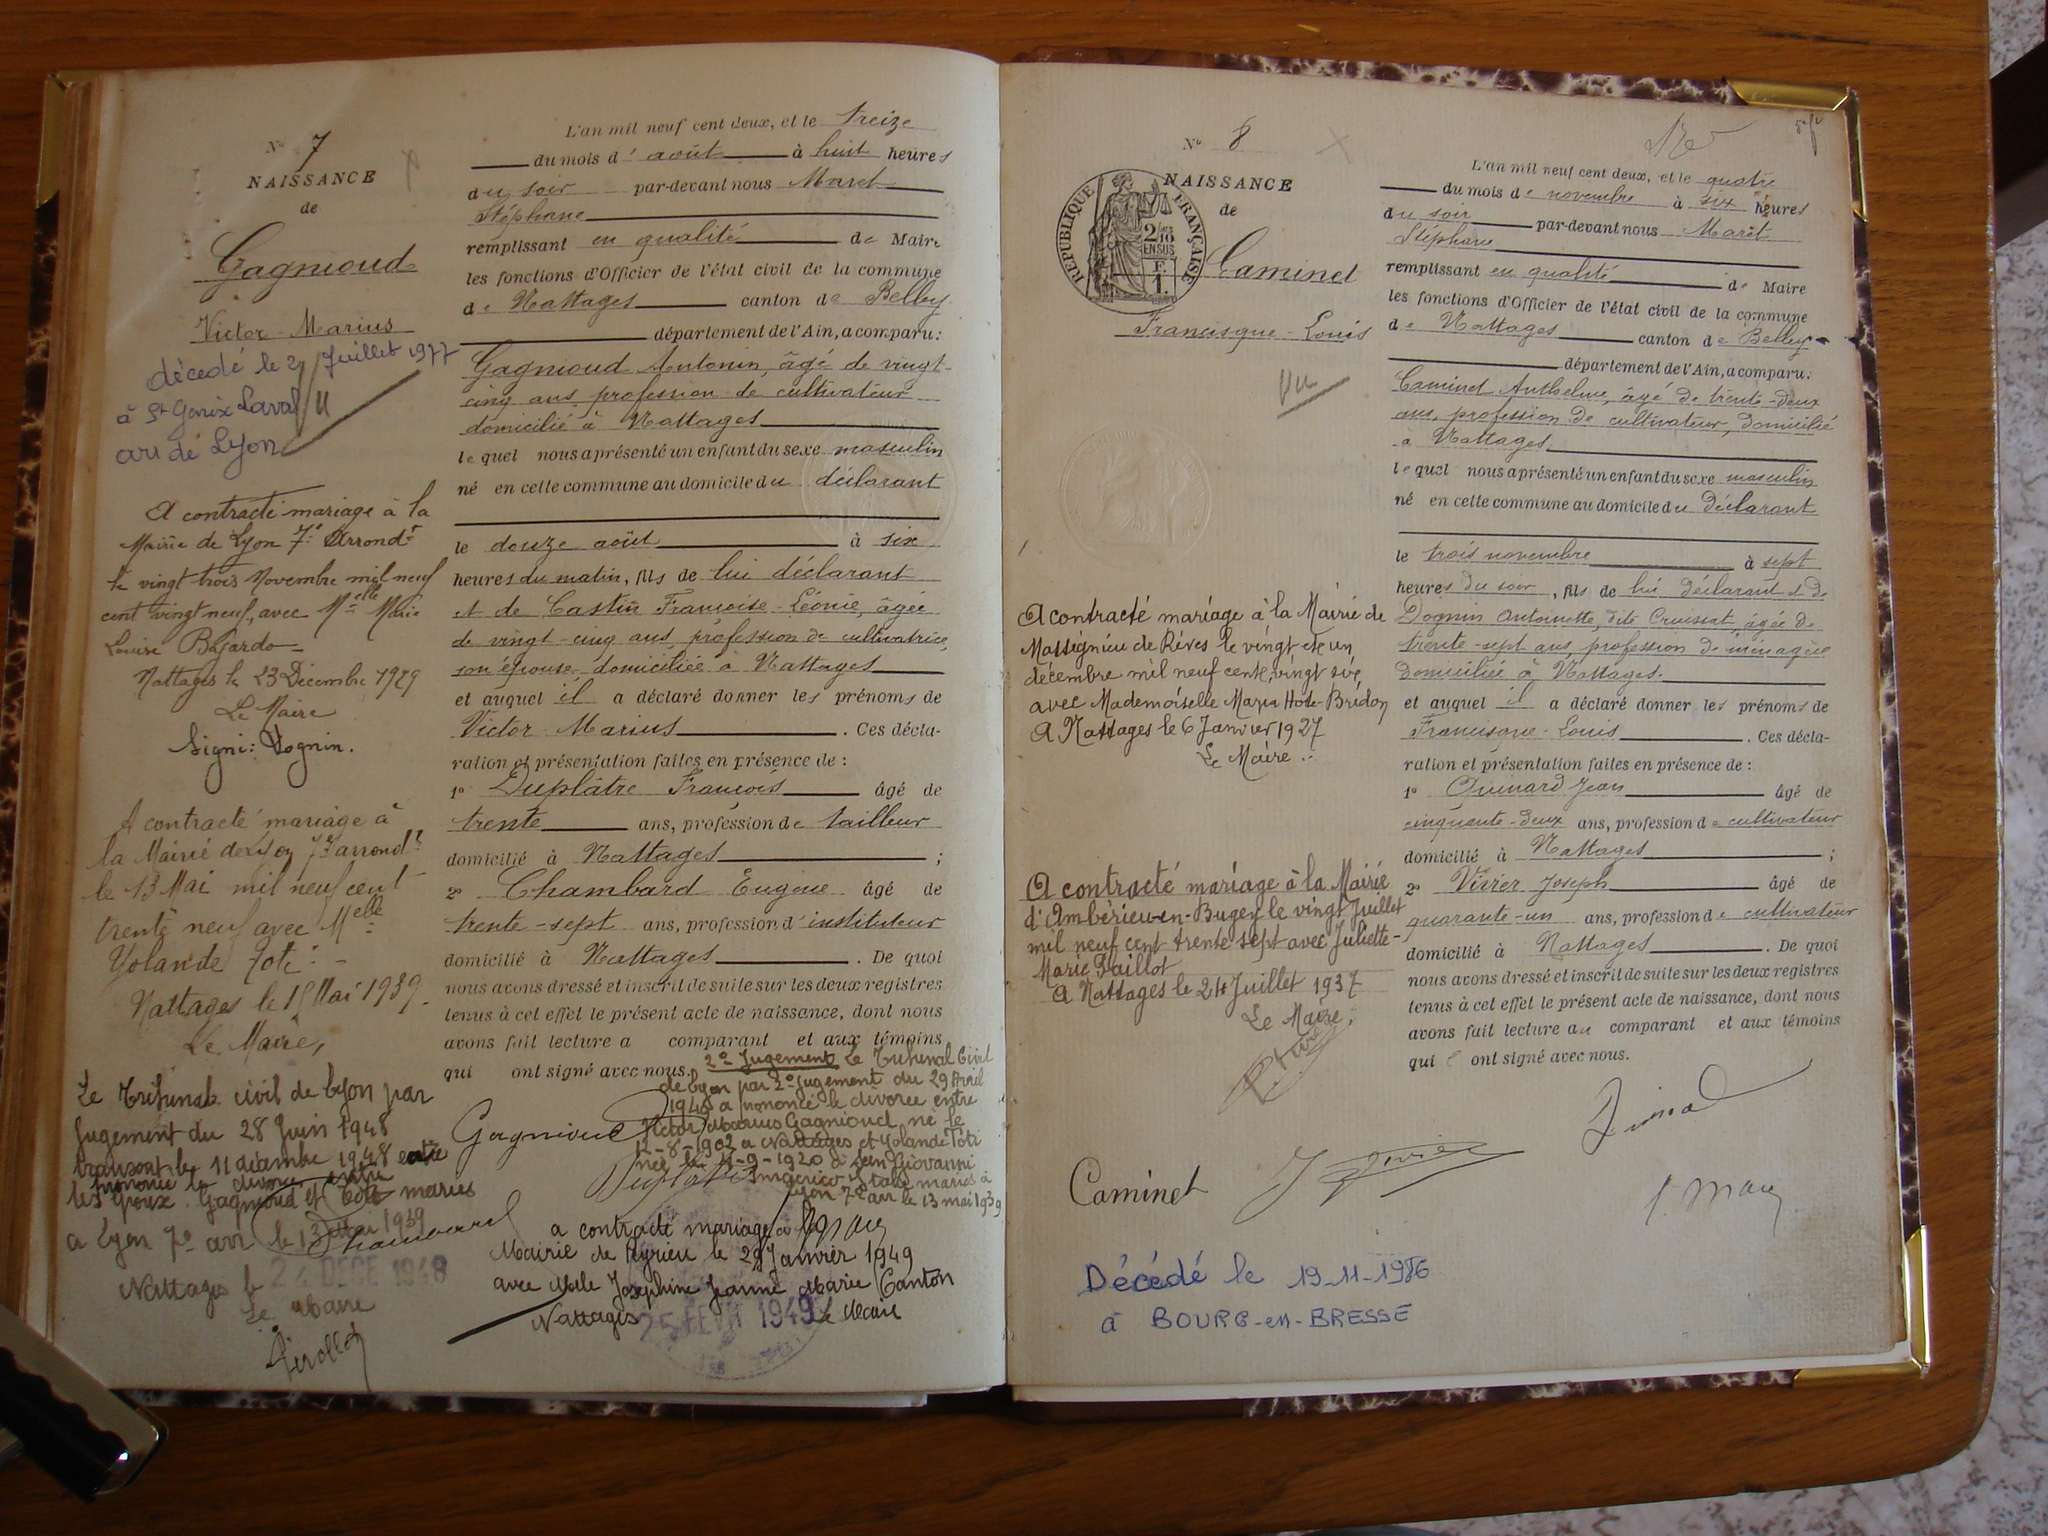 N° 7
NAISSANCE
de
Gagnioud
Victor-Marius
décédé le 2 Juillet 1977
à St Genix Laval
arr de Lyon
A contracté mariage à la
Mairie de Lyon 7e Arrondt
le vingt trois Novembre mil neuf
cent vingt neuf, avec Melle Marie
Louise
Nattages le 23 Décembre 1929
Le Maire
Signé: Dognin.
A contracté mariage à
la Mairie de Lyon 7e arrondt
le 13 Mai mil neuf cent
trente neuf avec Melle
Yolande Toti
Nattages le Mai 1939
Le Maire,
Le Tribunal civil de Lyon par
Jugement du 28 Juin 1948
transcrit le 11 décembre 1948
prononcé le divorce entre
les époux Gagnioud et Toti mariés
à Lyon 7e arr le 13 Mai 1939
Nattages le 24 DECE 1948
Le Maire
L'an mil neuf cent deux, et le treize
du mois d' août à huit heures
du soir par-devant nous Maret
Stéphane
remplissant en qualité de Maire
les fonctions d'Officier de l'état civil de la commune
de Nattages canton de Belley
département de l'Ain, a comparu:
Gagnioud Antonin, âgé de vingt-
cinq ans, profession de cultivateur
domicilié à Nattages
lequel nous a présenté un enfant du sexe masculin
né en cette commune au domicile du déclarant
le douze août à six
heures du matin, fils de lui déclarant
et de Castin Françoise-Léonie, âgée
de vingt-cinq ans, profession de cultivatrice,
son épouse, domiciliée à Nattages
et auquel il a déclaré donner les prénoms de
Victor-Marius. Ces décla-
ration et présentation faites en présence de :
1° Duplâtre François âgé de
trente ans, profession de tailleur
domicilié à Nattages ;
2° Chambard Eugène âgé de
trente-sept ans, profession d'instituteur
domicilié à Nattages. De quoi
nous avons dressé et inscrit de suite sur les deux registres
tenus à cet effet le présent acte de naissance, dont nous
avons fait lecture a comparant et aux témoins
qui ont signé avec nous.
2° Jugement Le Tribunal Civil
de Lyon par 2° jugement du 29 Avril
1948 a prononcé le divorce entre
Victor Marius Gagnioud né le
12-8-1902 à Nattages et Yolande Toti
née le -9-1920 à San Giovanni
Italie mariés à
Lyon 7e arr le 13 mai 1939
Gagnioud
Duplâtre
Chambard
a contracté mariage à la
Mairie de Peyrieu le 29 Janvier 1949
avec Melle Joséphine Jeanne Marie Canton
Nattages 25 FEVR 1949 Le Maire
N° 8
NAISSANCE
de
RÉPUBLIQUE FRANÇAISE
2/10 EN SUS
1F.
Caminet
Francisque-Louis
Vu
A contracté mariage à la Mairie de
Massignieu de Rives le vingt et un
décembre mil neuf cent vingt six
avec Mademoiselle Maria Hoste-Brédon
A Nattages le 6 Janvier 1927
Le Maire
A contracté mariage à la Mairie
d'Ambérieu-en-Bugey le vingt Juillet
mil neuf cent trente sept avec Juliette-
Marie Paillot
A Nattages le 24 Juillet 1937
Le Maire,
L'an mil neuf cent deux, et le quatre
du mois de novembre à six heures
du soir par-devant nous Maret
Stéphane
remplissant en qualité de Maire
les fonctions d'Officier de l'état civil de la commune
de Nattages canton de Belley
département de l'Ain, a comparu:
Caminet Anthelme, âgé de trente-deux
ans, profession de cultivateur, domicilié
à Nattages
lequel nous a présenté un enfant du sexe masculin
né en cette commune au domicile du déclarant
le trois novembre à sept
heures du soir, fils de lui déclarant et de
Dognin Antoinette, dite Croissat, âgée de
trente-sept ans, profession de ménagère
domiciliée à Nattages.
et auquel il a déclaré donner les prénoms de
Francisque-Louis. Ces décla-
ration et présentation faites en présence de :
1° Quinard Jean âgé de
cinquante-deux ans, profession de cultivateur
domicilié à Nattages ;
2° Vivier Joseph âgé de
quarante-un ans, profession de cultivateur
domicilié à Nattages. De quoi
nous avons dressé et inscrit de suite sur les deux registres
tenus à cet effet le présent acte de naissance, dont nous
avons fait lecture au comparant et aux témoins
qui ont signé avec nous.
Caminet
J Vivier
S. Maret
Décédé le 19-11-1986
à BOURG-en-BRESSE